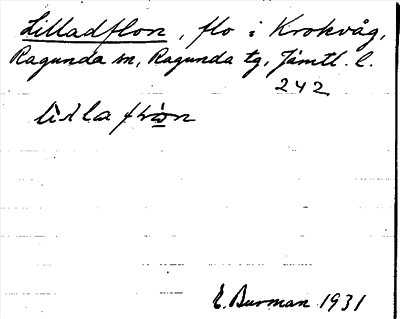 Lilladflon, flo i Krokvåg,
Ragunda sn, Ragunda tg, Jämtl. l.
242
E. Burman 1931